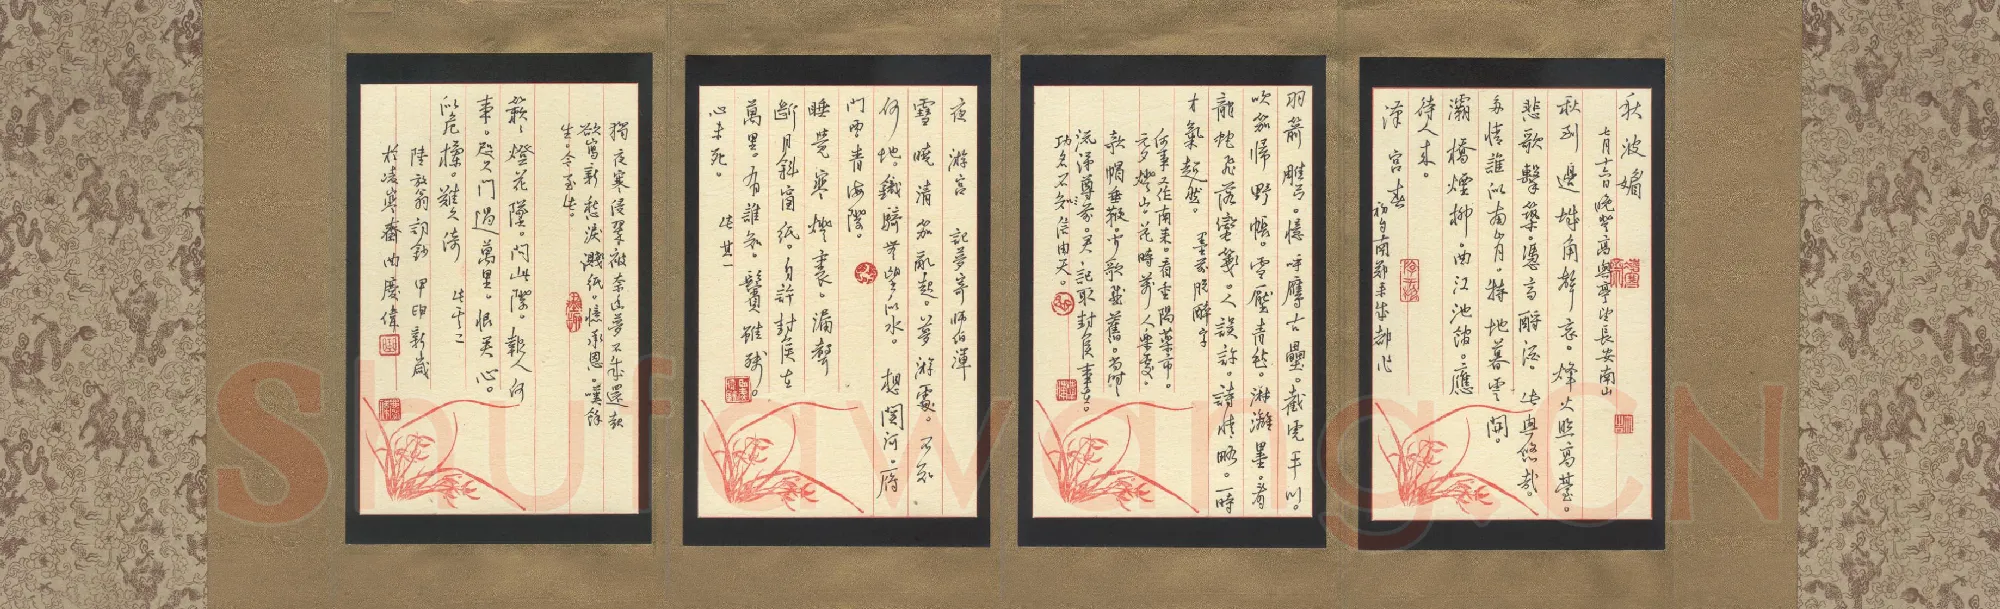 秋波媚
七月十六日晚登高興亭望長安南山
秋到邊城角聲哀。烽火照高臺。
悲歌擊築。憑高酹酒。此興悠哉。
多情誰似南山月。特地暮雲開。
灞橋煙柳。曲江池館。應
待人來。
漢宮春 初自南鄭來成都作
羽箭雕弓。憶呼鷹古壘。截虎平川。
吹笳歸野帳。雪壓青氈。淋漓墨。看
龍蛇飛落蠻箋。人誤許。詩情略。一時
才氣超然。 墨前脫醉字
何事又作南來。看重陽藥市。
元夕燈山。花時萬人樂處。
欹帽垂鞭。聞歌感舊。尚時
流涕尊前。君記取封侯事在。
功名不信由天。
夜游宮 記夢寄師伯渾
雪曉清笳亂起。夢游處。不知
何地。鐵騎無望似水。想關河。雁
門西。青海際。
睡覺寒燈裏。漏聲
斷月斜窗紙。自許封侯在
萬里。有誰知。鬢雖殘。
心未死。 此其一
獨夜寒侵翠被。奈幽夢。不成還起
欲寫新愁淚濺紙。憶承恩。嘆餘
生。今至此。
簌簌燈花墜。問此際。報人何
事。咫尺門過萬里。恨君心。
似危欄。難久倚 此其二
陸放翁詞鈔 甲申新歲
於凌寒齋 曲慶偉
Shufawang.CN